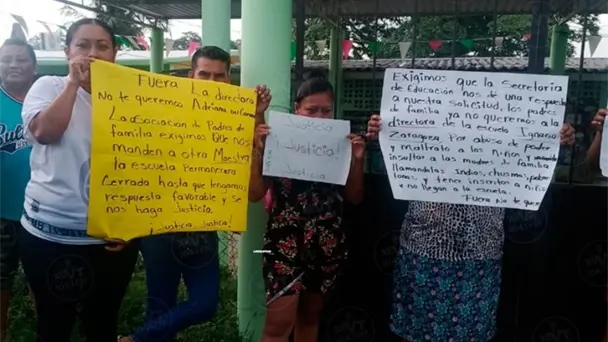 Fuera La directora
No te queremos Adriana
La Asociación de Padres de
familia exigimos que nos
manden a otra Maestra
la escuela permanecera
Cerrada hasta que tengamos
respuesta favorable y se
nos haga Justicia.
¡Justicia, Justicia!
Justicia
¡Justicia!
Justicia
Exigimos que la Secretaria
de Educación nos de una respuesta
a nuestra solicitud, los padres
de familia ya no queremos a la
directora de la escuela Ignacio
Zaragoza Por abuso de poder
y maltrato a los niños, y
insulto a las madres de familia
llamandolas Indias, chusma, pobre
y tener inscritos a niños
y no llegan a la escuela.
Fuera No te quere